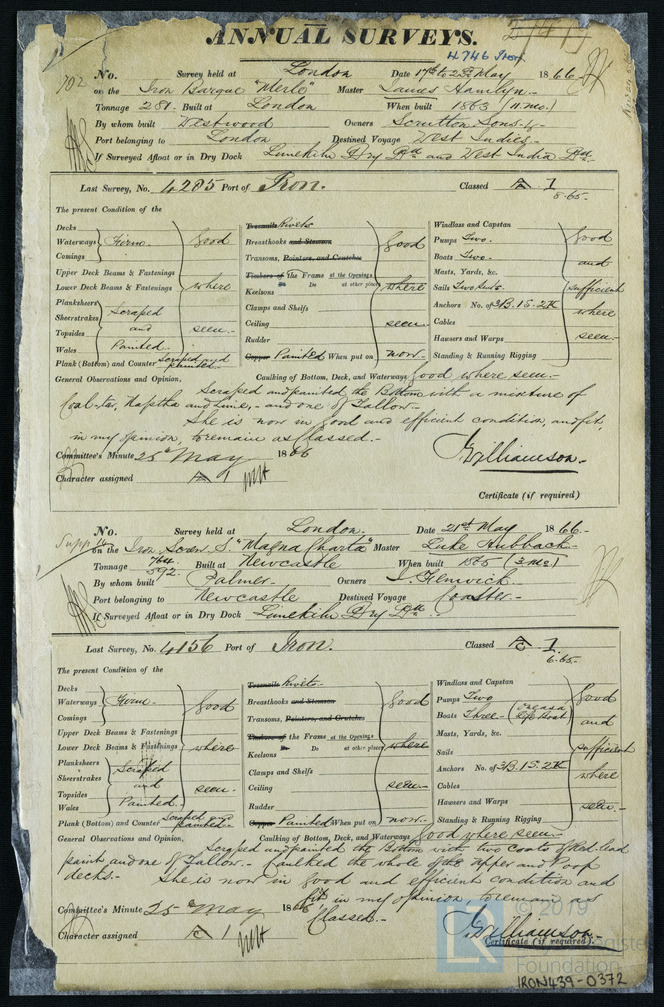 ANNUAL SURVEYS.
4746 Iron
702 No. Survey held at London Date 17th to 23d May 1866
on the Iron Barque "Merle" Master James Hamlyn
Tonnage 281. Built at London When built 1863 (11 mo.)
By whom built Westwood Owners Scrutton Sons &
Port belonging to London Destined Voyage West Indies
If Surveyed Afloat or in Dry Dock Limekiln Dry Dk and West India Dk
Last Survey, No. 4285 Port of Iron. Classed A 1
8.65.
The present Condition of the
Decks
Waterways Firm. good
Comings
Upper Deck Beams & Fastenings
Lower Deck Beams & Fastenings where
Planksheers
Sheerstrakes Scraped
Topsides and seen.
Wales Painted.
Plank (Bottom) and Counter Scraped and painted.
Treenails Rivets
Breasthooks and Stemson good
Transoms, Pointers, and Crutches
Timbers of the Frame at the Openings
Do Do at other places where
Keelsons
Clamps and Shelfs
Ceiling seen.
Rudder
Copper Painted When put on now.
Windlass and Capstan
Pumps Two. good
Boats Two. and
Masts, Yards, &c.
Sails Two Suits. sufficient
Anchors No. of 3B. 1S. 2K where
Cables
Hawsers and Warps seen.
Standing & Running Rigging
General Observations and Opinion, Caulking of Bottom, Deck, and Waterways good where seen.
Scraped and painted the Bottom with a mixture of
Coal-tar, Naptha and Lime, and one of Tallow.
She is now in good and efficient condition, and fit,
in my opinion, to remain as Classed.
Committee's Minute 25th May 1866 Williamson.
Character assigned A 1
Certificate (if required)
No. Survey held at London. Date 21st May 1866.
Supp on the Iron Screw S. "Magna Charta" Master Luke Hubback
Tonnage 764. 592. Built at Newcastle When built
By whom built Palmer. Owners J. Fenwick.
Port belonging to Newcastle Destined Voyage Coaster.
If Surveyed Afloat or in Dry Dock Limekiln Dry Dk
Last Survey, No. 4156 Port of Iron. Classed A 1
6.65.
The present Condition of the
Decks
Waterways Firm. good
Comings
Upper Deck Beams & Fastenings
Lower Deck Beams & Fastenings where
Planksheers
Sheerstrakes Scraped
Topsides and seen.
Wales Painted.
Plank (Bottom) and Counter Scraped and painted.
Treenails Rivets.
Breasthooks and Stemson good
Transoms, Pointers, and Crutches
Timbers of the Frame at the Openings
Do Do at other places where
Keelsons
Clamps and Shelfs
Ceiling seen.
Rudder
Copper Painted When put on now.
Windlass and Capstan
Pumps Two good
Boats Three. Life Boat and
Masts, Yards, &c.
Sails sufficient
Anchors No. of 3B. 1S. 2K where
Cables
Hawsers and Warps seen.
Standing & Running Rigging
General Observations and Opinion, Caulking of Bottom, Deck, and Waterways good where seen.
Scraped and painted the Bottom with two Coats of Red lead
paint, and one of Tallow. Caulked the whole of the Upper and Poop
decks. She is now in good and efficient condition and
fit in my opinion to remain as
Classed.
Committee's Minute 25 May 1866
Character assigned A 1 Williamson.
Certificate (if required).
© 2019
Lloyd's Register
Foundation
IRON439-0372